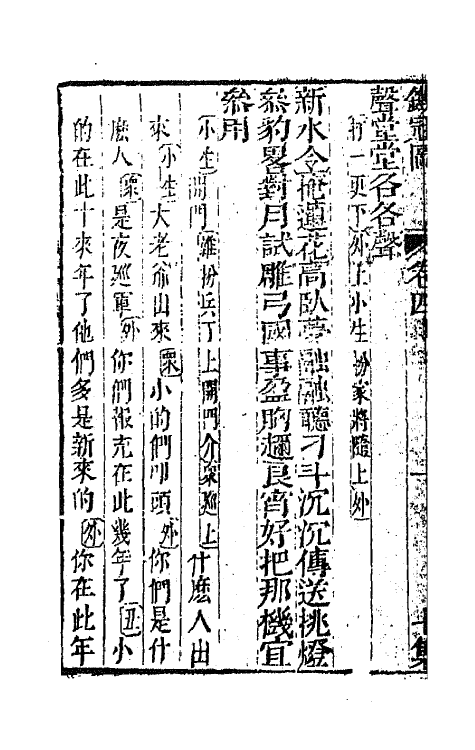 聲堂堂名各聲
打一更下外上小生扮家將隨上外
新水令掩蓮花高臥夢融融聽刁斗沉沉傳送挑燈
叅豹畧對月試雕弓國事盈胸趣良宵好把那機宜
叅用
小生開門雜扮兵丁上開門介衆巡上什麽人出
來小生大老爺出來衆小的們叩頭外你們是什
麽人衆是夜巡軍外你們報充在此幾年了丑小
的在此十來年了他們多是新來的外你在此年